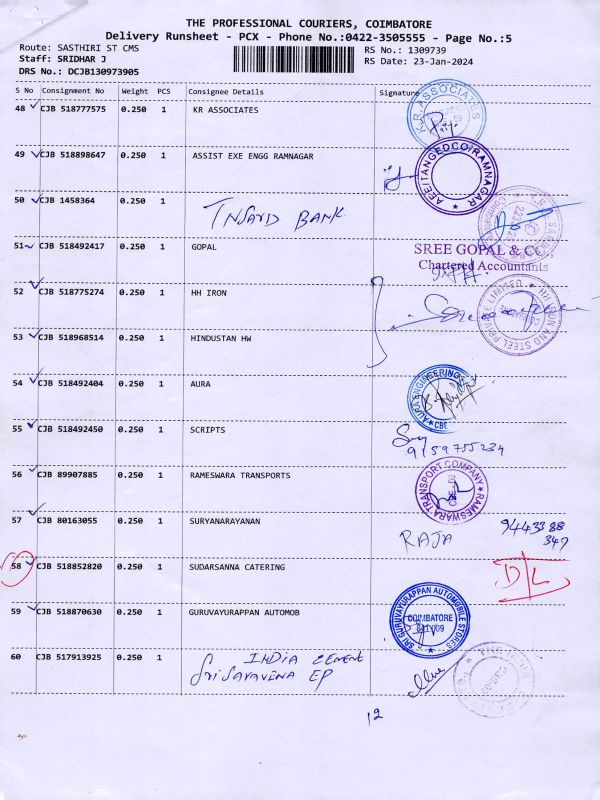 THE PROFESSIONAL COURIERS, COIMBATORE
Delivery Runsheet - PCX - Phone No.:0422-3505555 - Page No.:5
Route: SASTHIRI ST CMS RS No.: 1309739
Staff: SRIDHAR J RS Date: 23-Jan-2024
DRS No.: DCJB130973905
S No Consignment No Weight PCS Consignee Details Signature
48 CJB 518777575 0.250 1 KR ASSOCIATES
K.R. ASSOCIATES
49 CJB 518898647 0.250 1 ASSIST EXE ENGG RAMNAGAR
AEE/TANGEDCO/RAMNAGAR
50 CJB 1458364 0.250 1
BANK
51 CJB 518492417 0.250 1 GOPAL
SREE GOPAL & CO.
Chartered Accountants
52 CJB 518775274 0.250 1 HH IRON
HH IRON AND STEEL PRIVATE LIMITED
53 CJB 518968514 0.250 1 HINDUSTAN HW
54 CJB 518492404 0.250 1 AURA
AURA ENGINEERINGS
CBE
55 CJB 518492450 0.250 1 SCRIPTS
9159755234
56 CJB 89907885 0.250 1 RAMESWARA TRANSPORTS
RAMESWARA TRANSPORT COMPANY
57 CJB 80163055 0.250 1 SURYANARAYANAN
RAJA 9443388
347
58 CJB 518852820 0.250 1 SUDARSANNA CATERING
D/L
59 CJB 518870630 0.250 1 GURUVAYURAPPAN AUTOMOB
SRI GURUVAYURAPPAN AUTOMOBILE STORES
COIMBATORE
60 CJB 517913925 0.250 1 INDIA CEMENT
Sri Saravena EP
12